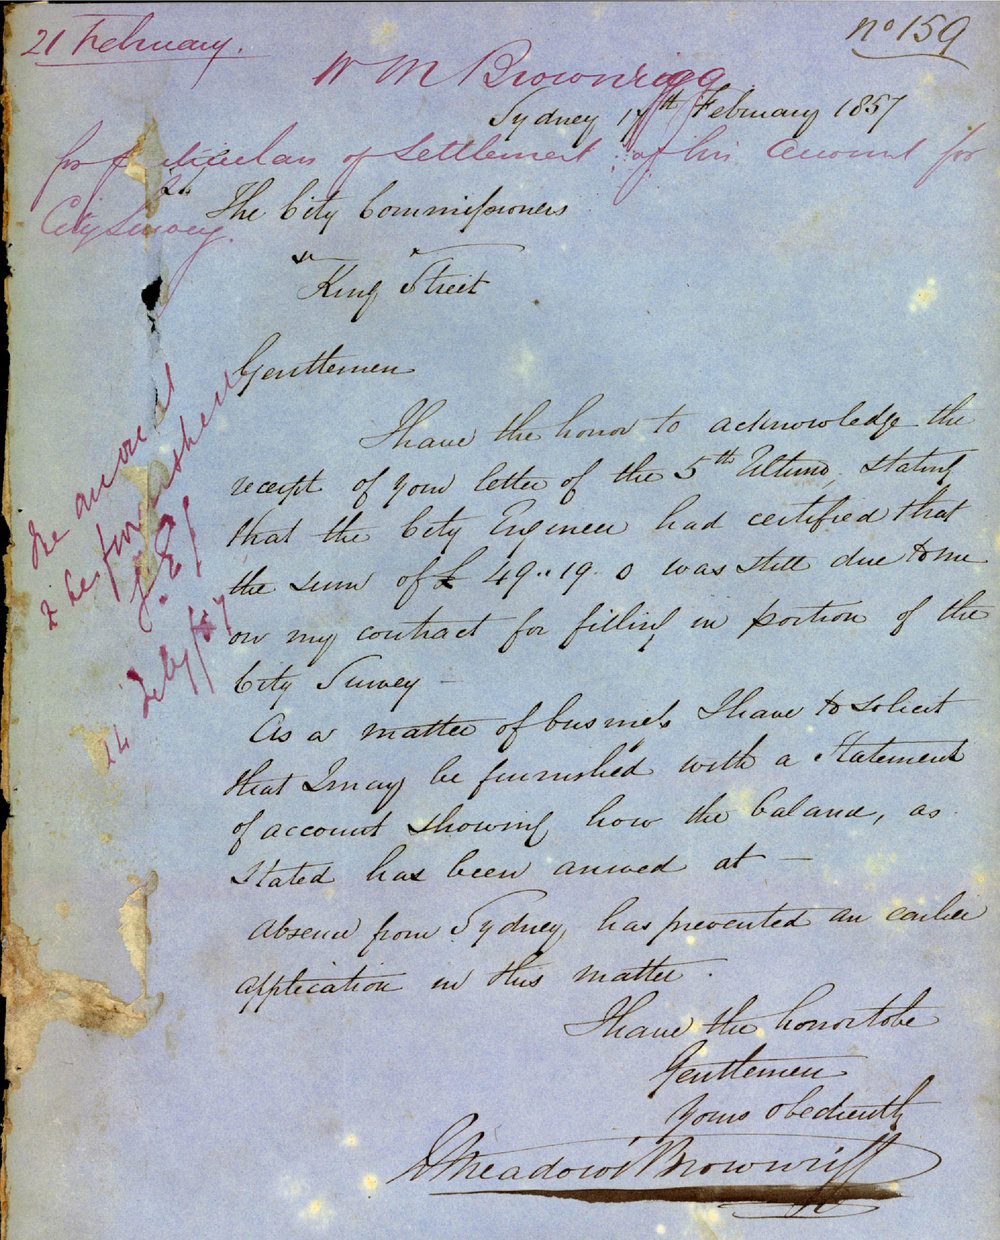 21 February.
no 159
W M Brownrigg
Sydney 17th February 1857
for particulars of Settlement of his Account for
City Survey.
The City Commissioners
King Street
Gentlemen
I have the honor to acknowledge the
receipt of your letter of the 5th Ultimo, stating
that the City Engineer had certified that
the sum of £ 49..19.0 was still due to me
on my contract for filling in portion of the
City Survey –
As a matter of business I have to solicit
that I may be furnished with a Statement
of account showing how the balance, as
Stated has been arrived at –
Absence from Sydney has prevented an earlier
application in this matter.
I have the honor to be
Gentlemen
Yours obediently
Meadows Brownrigg
The amount
to be furnished
24 Feby /57